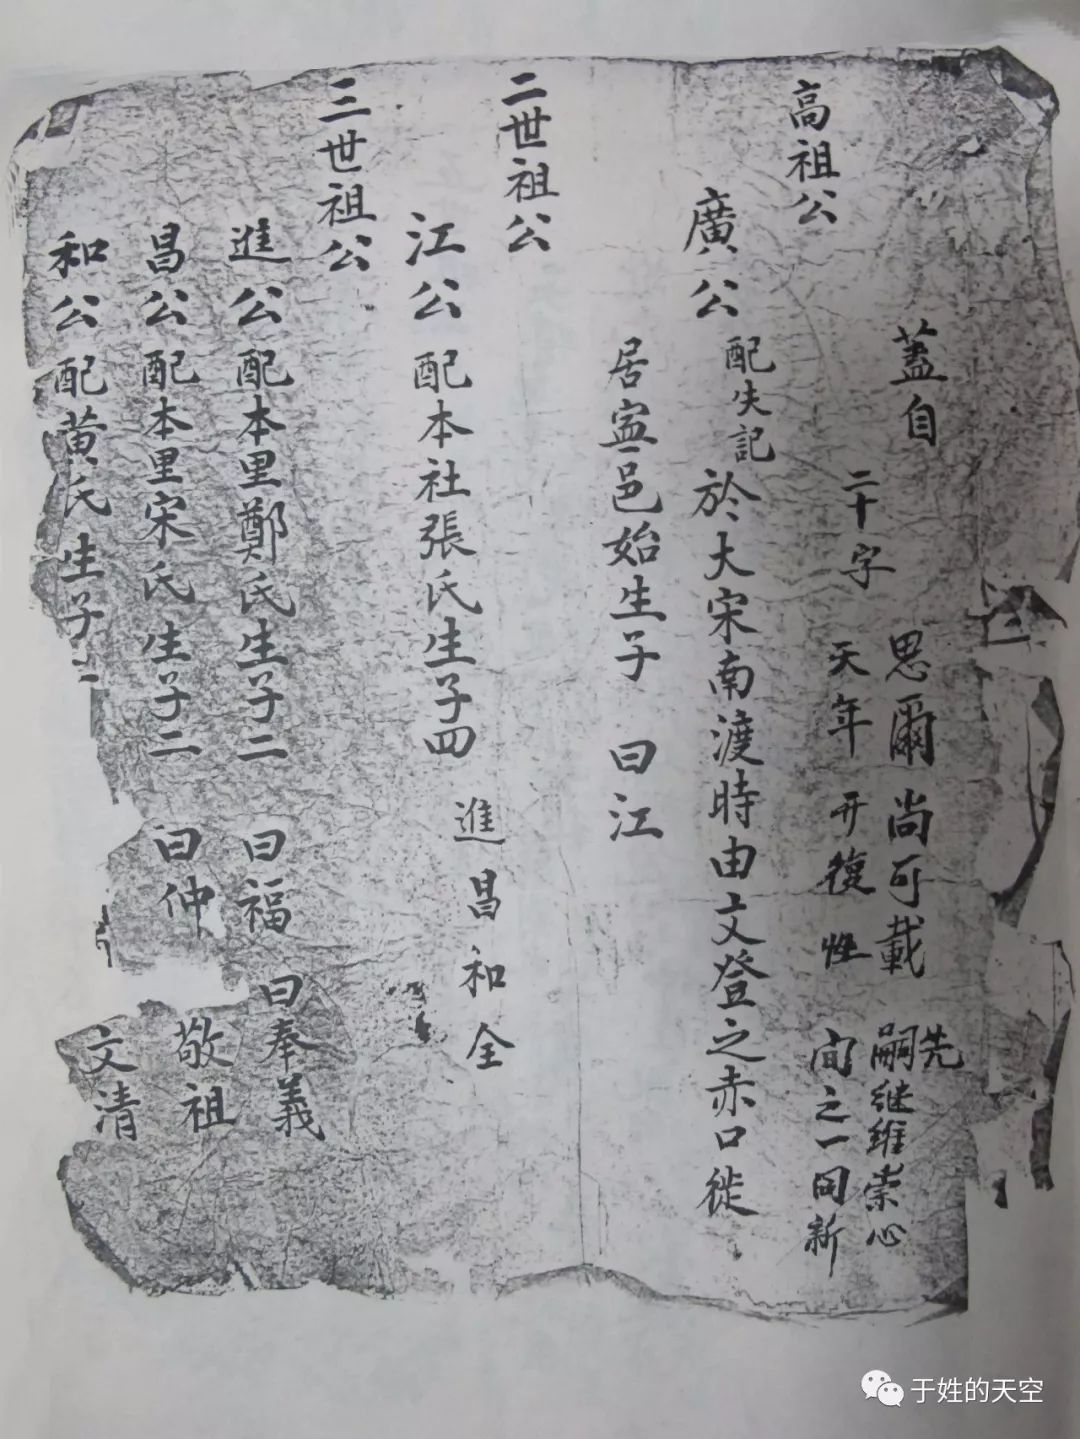 蓋自
二十字
思爾 尚可載 先嗣继維崇心
天年 开復 性 间之一同新
高祖公
廣公 配失記 於大宋南渡時由文登之赤口徙
居寍邑始生子 曰江
二世祖公
江公 配本社張氏生子四 進昌和全
三世祖公
進公 配本里鄭氏生子二 曰福 曰奉義
昌公 配本里宋氏生子二 曰仲 敬祖
和公 配黄氏生子 文清
于姓的天空